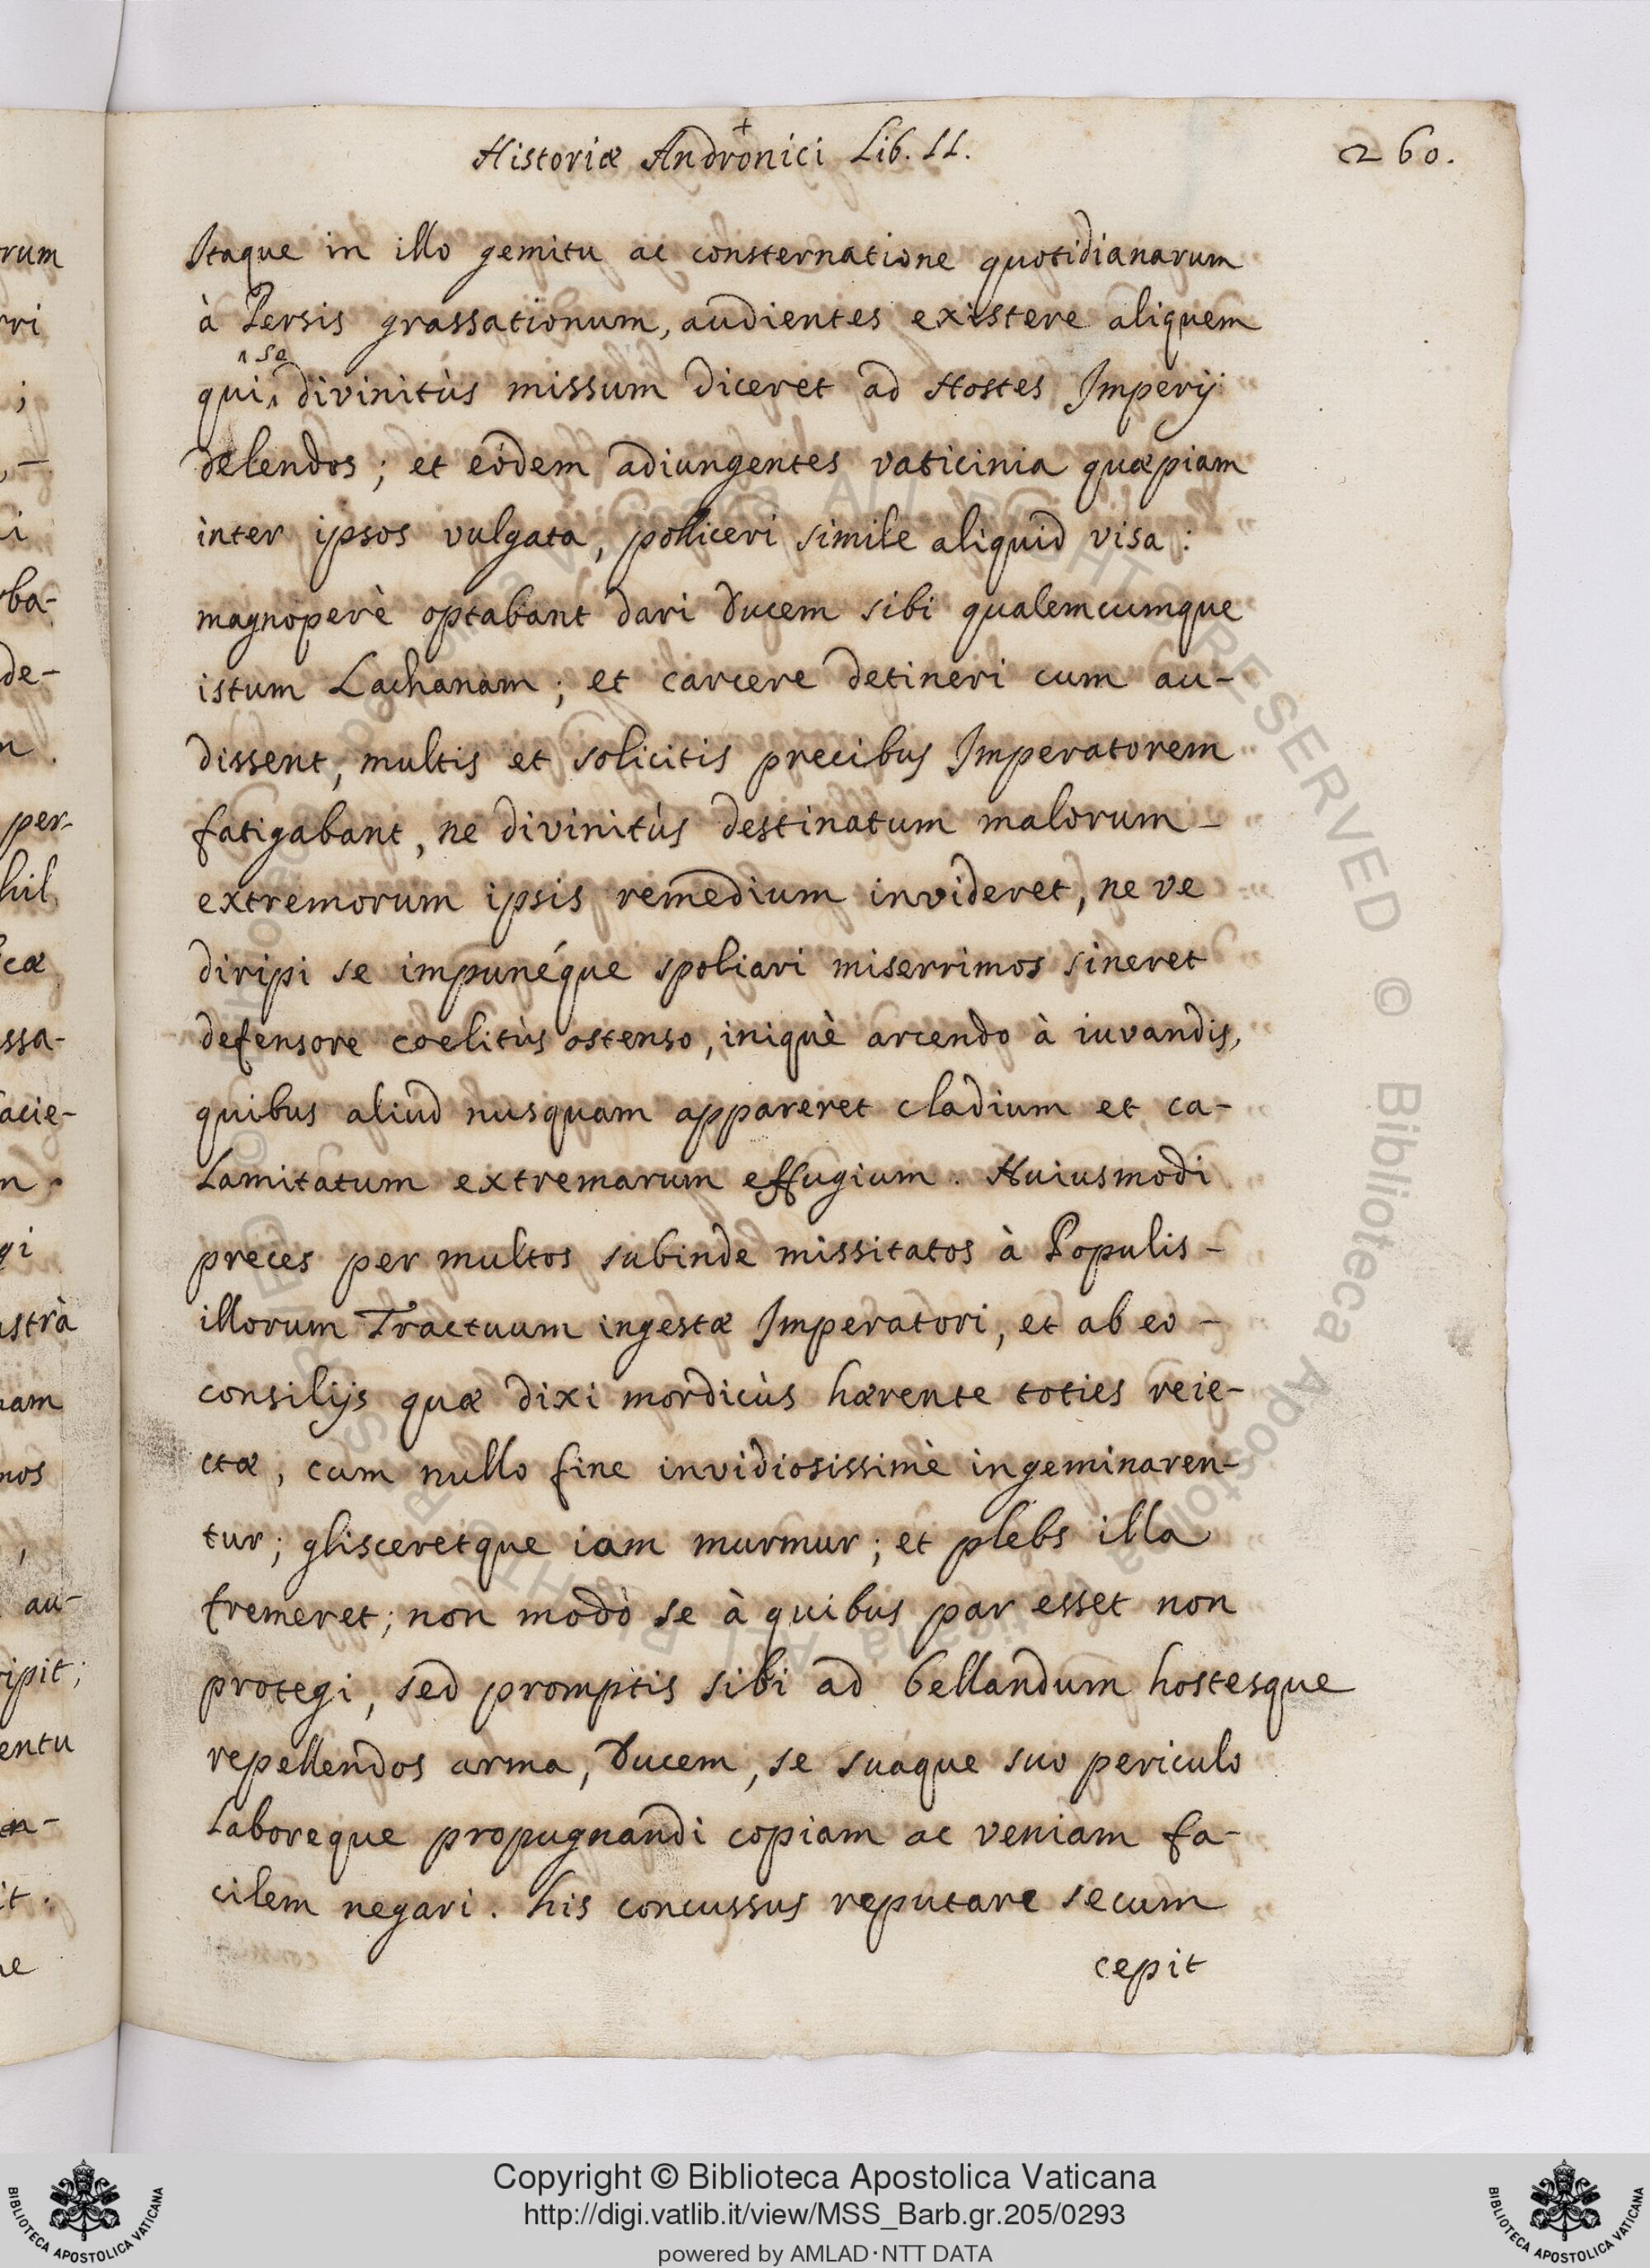 Historiæ Andronici Lib. II.
260.
Itaque in illo gemitu ac consternatione quotidianarum
à Persis grassationum, audientes existere aliquem
se
qui divinitùs missum diceret ad Hostes Imperij
delendos; et eòdem adiungentes vaticinia quæpiam
inter ipsos vulgata, polliceri simile aliquid visa:
magnoperè optabant dari Ducem sibi qualemcumque
istum Lachanam; et carcere detineri cum au-
dissent, multis et solicitis precibus Imperatorem
fatigabant, ne divinitùs destinatum malorum -
extremorum ipsis remedium invideret, ne ve
diripi se impunéque spoliari miserrimos sineret
defensore coelitùs ostenso, iniquè arcendo à iuvandis,
quibus aliud nusquam appareret cladium et ca-
lamitatum extremarum effugium. Huiusmodi
preces per multos subinde missitatos à Populis -
illorum Tractuum ingestæ Imperatori, et ab eo -
consilijs quæ dixi mordicùs hærente toties reie-
ctæ, cum nullo fine invidiosissimè ingeminaren-
tur; glisceretque iam murmur; et plebs illa
fremeret; non modò se à quibus par esset non
protegi, sed promptis sibi ad bellandum hostesque
repellendos arma, Ducem, se suaque suo periculo
laboreque propugnandi copiam ac veniam fa-
cilem negari. his concussus reputare secum
cepit
rum
rri
;
, -
i
rba-
de-
per-
hil
cæ
ssa-
acie-
gi
ustrà
nam
nos
,
au-
ripit;
entu
en-
it.
Copyright © Biblioteca Apostolica Vaticana
http://digi.vatlib.it/view/MSS_Barb.gr.205/0293
powered by AMLAD·NTT DATA
BIBLIOTECA APOSTOLICA VATICANA
BIBLIOTECA APOSTOLICA VATICANA